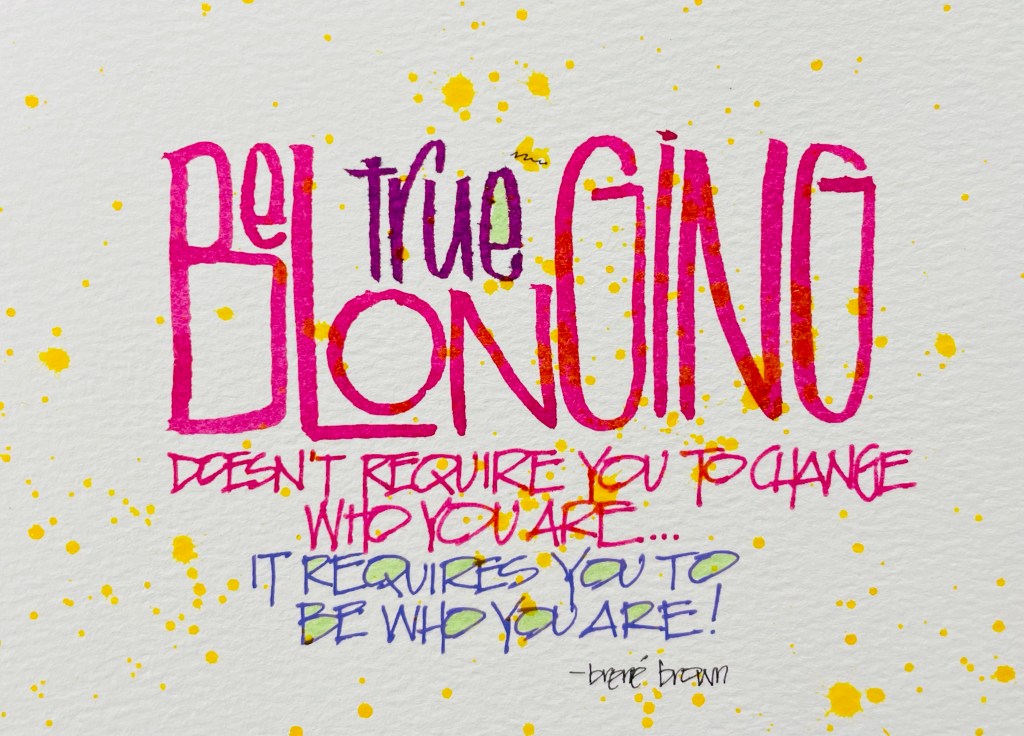 true
BeLONGiNG
DOESN'T REQUIRE YOU TO CHANGE
WHO YOU ARE...
IT REQUIRES YOU TO
BE WHO YOU ARE!
-brené brown